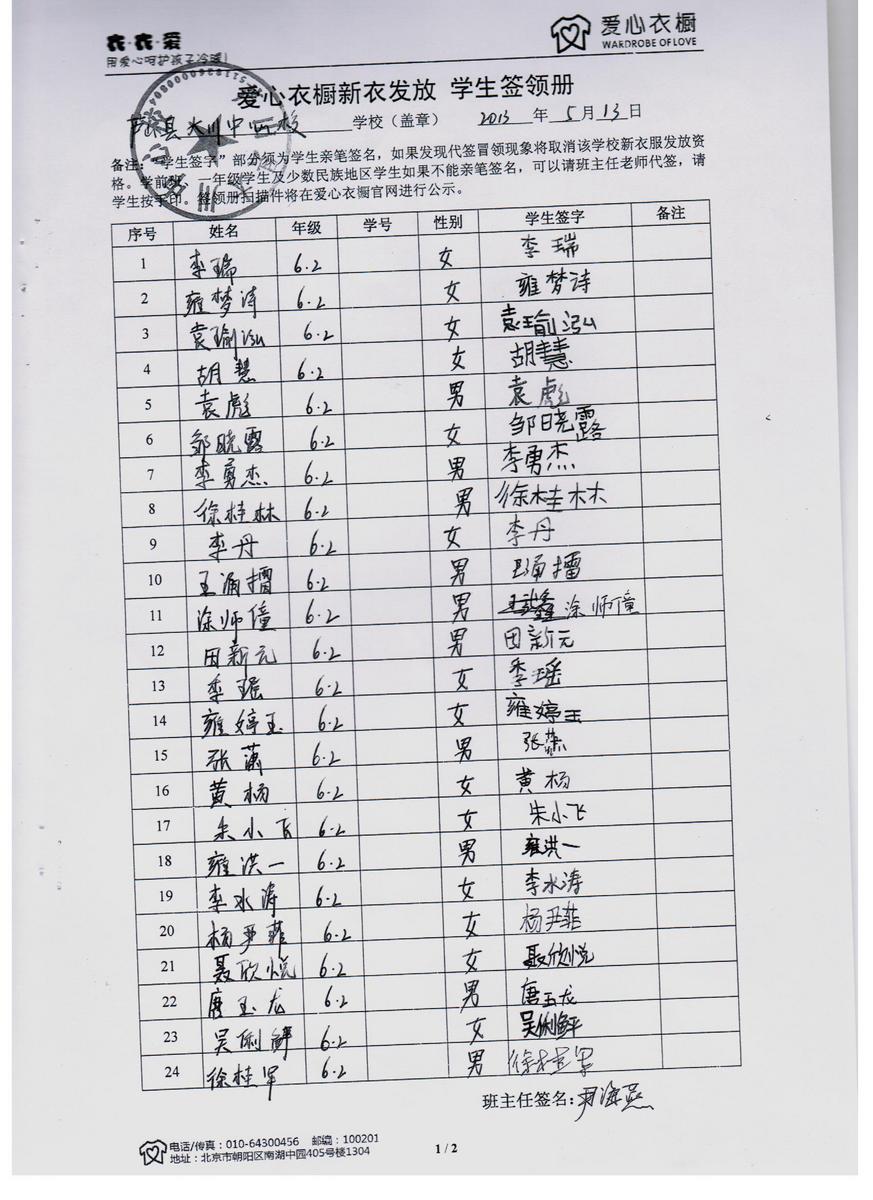 衣·衣·爱
用爱心呵护孩子冷暖!
爱心衣橱
WARDROBE OF LOVE
爱心衣橱新衣发放 学生签领册
县大川中心校 学校（盖章） 2013 年 5 月 13 日
备注：“学生签字”部分须为学生亲笔签名，如果发现代签冒领现象将取消该学校新衣服发放资
格。学前班、一年级学生及少数民族地区学生如果不能亲笔签名，可以请班主任老师代签，请
学生按手印。签领册扫描件将在爱心衣橱官网进行公示。
序号 姓名 年级 学号 性别 学生签字 备注
1 李瑞 6.2 女 李瑞
2 雍梦诗 6.2 女 雍梦诗
3 袁瑜泓 6.2 女 袁瑜泓
4 胡慧 6.2 女 胡慧
5 袁彪 6.2 男 袁彪
6 邹晓露 6.2 女 邹晓露
7 李勇杰 6.2 男 李勇杰
8 徐桂林 6.2 男 徐桂林
9 李丹 6.2 女 李丹
10 王涌擂 6.2 男 王涌擂
11 涂师僮 6.2 男 涂师僮
12 田新元 6.2 男 田新元
13 李瑶 6.2 女 李瑶
14 雍婷玉 6.2 女 雍婷玉
15 张 6.2 男 张
16 黄杨 6.2 女 黄杨
17 朱小飞 6.2 女 朱小飞
18 雍洪一 6.2 男 雍洪一
19 李水涛 6.2 女 李水涛
20 杨尹菲 6.2 女 杨尹菲
21 聂欣悦 6.2 女 聂欣悦
22 唐玉龙 6.2 男 唐玉龙
23 吴俐鲆 6.2 女 吴俐鲆
24 徐桂军 6.2 男 徐桂军
班主任签名：尹海燕
电话/传真：010-64300456 邮编：100201
地址：北京市朝阳区南湖中园405号楼1304
1 / 2